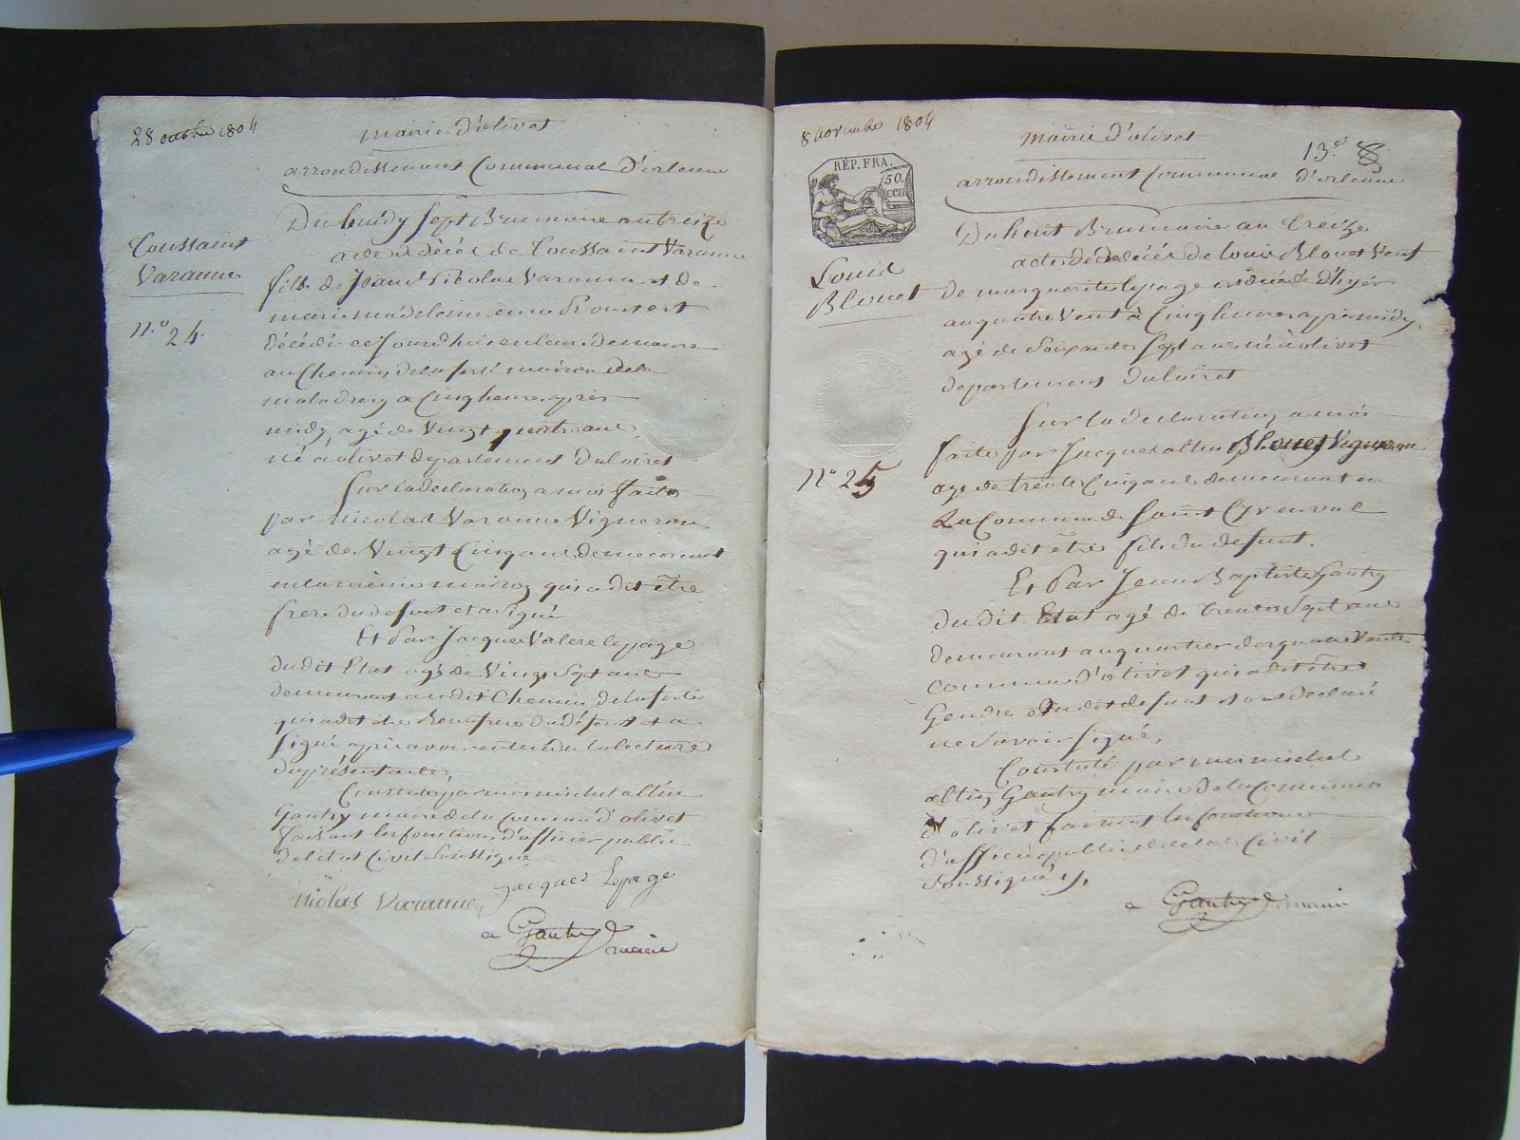 28 octobre 1804
mairie d'olivet
arrondissement Communal d'orleans
Toussaint
Varanne
n.o 24.
Du huidy sept Brumaire an treize
acte de décès de Toussaint Varanne
fils de Jean Nicolas Varanne et de
marie madelaine
décédé ce Jourdhui en lieu demeure
au Chemin de la ferté maison de la
maladrery a Cinq heures après
midy agé de Vingt quatre ans
né à olivet departement du loiret
Sur la declaration a moi faite
par nicolas Varanne Vigneron
agé de Vingt Cinq ans demeurant
en la même maison qui a dit être
frere du defunt et a signé
Et Par Jacques Valere lepage
du dit Etat agé de Vingt sept ans
demeurant au dit Chemin de la ferté
qui a dit être Beaufrere du défunt et a
signé après avoir entendu la lecture
du présent acte,
Constaté par moi michel altin
Gautry maire de la Commune d'olivet
faisant les fonctions d'officier public
de l'état Civil soussigné
Nicolas Varanne Jacques Lepage
a Gautry maire
8 novembre 1804
mairie d'olivet
13.e 8
arrondissement Communal d'orleans
RÉP. FRA.
50
CEN
Louis
Blouet
N° 25
Du huit Brumaire an treize
acte de décès de Louis Blouet Veuf
de marguerite lepage décédé d'hyer
au quartier Vent à Cinq heures après midy,
agé de soixante sept ans né à olivet
departement du loiret
Sur la declaration a moi
faite par Jacques altin Blouet Vigneron
agé de trente Cinq ans demeurant en
La Commune de Saint Cyr en val
qui a dit être fils du defunt.
Et Par Jean Baptiste Gautry
du dit Etat agé de trente sept ans
demeurant au quartier
commune d'olivet qui a dit être
Gendre du dit defunt et ont declaré
ne savoir signé,
Constaté par moi michel
altin Gautry maire de la Commune
d'olivet faisant les fonctions
d'officier public de l'état Civil
soussigné
a Gautry maire